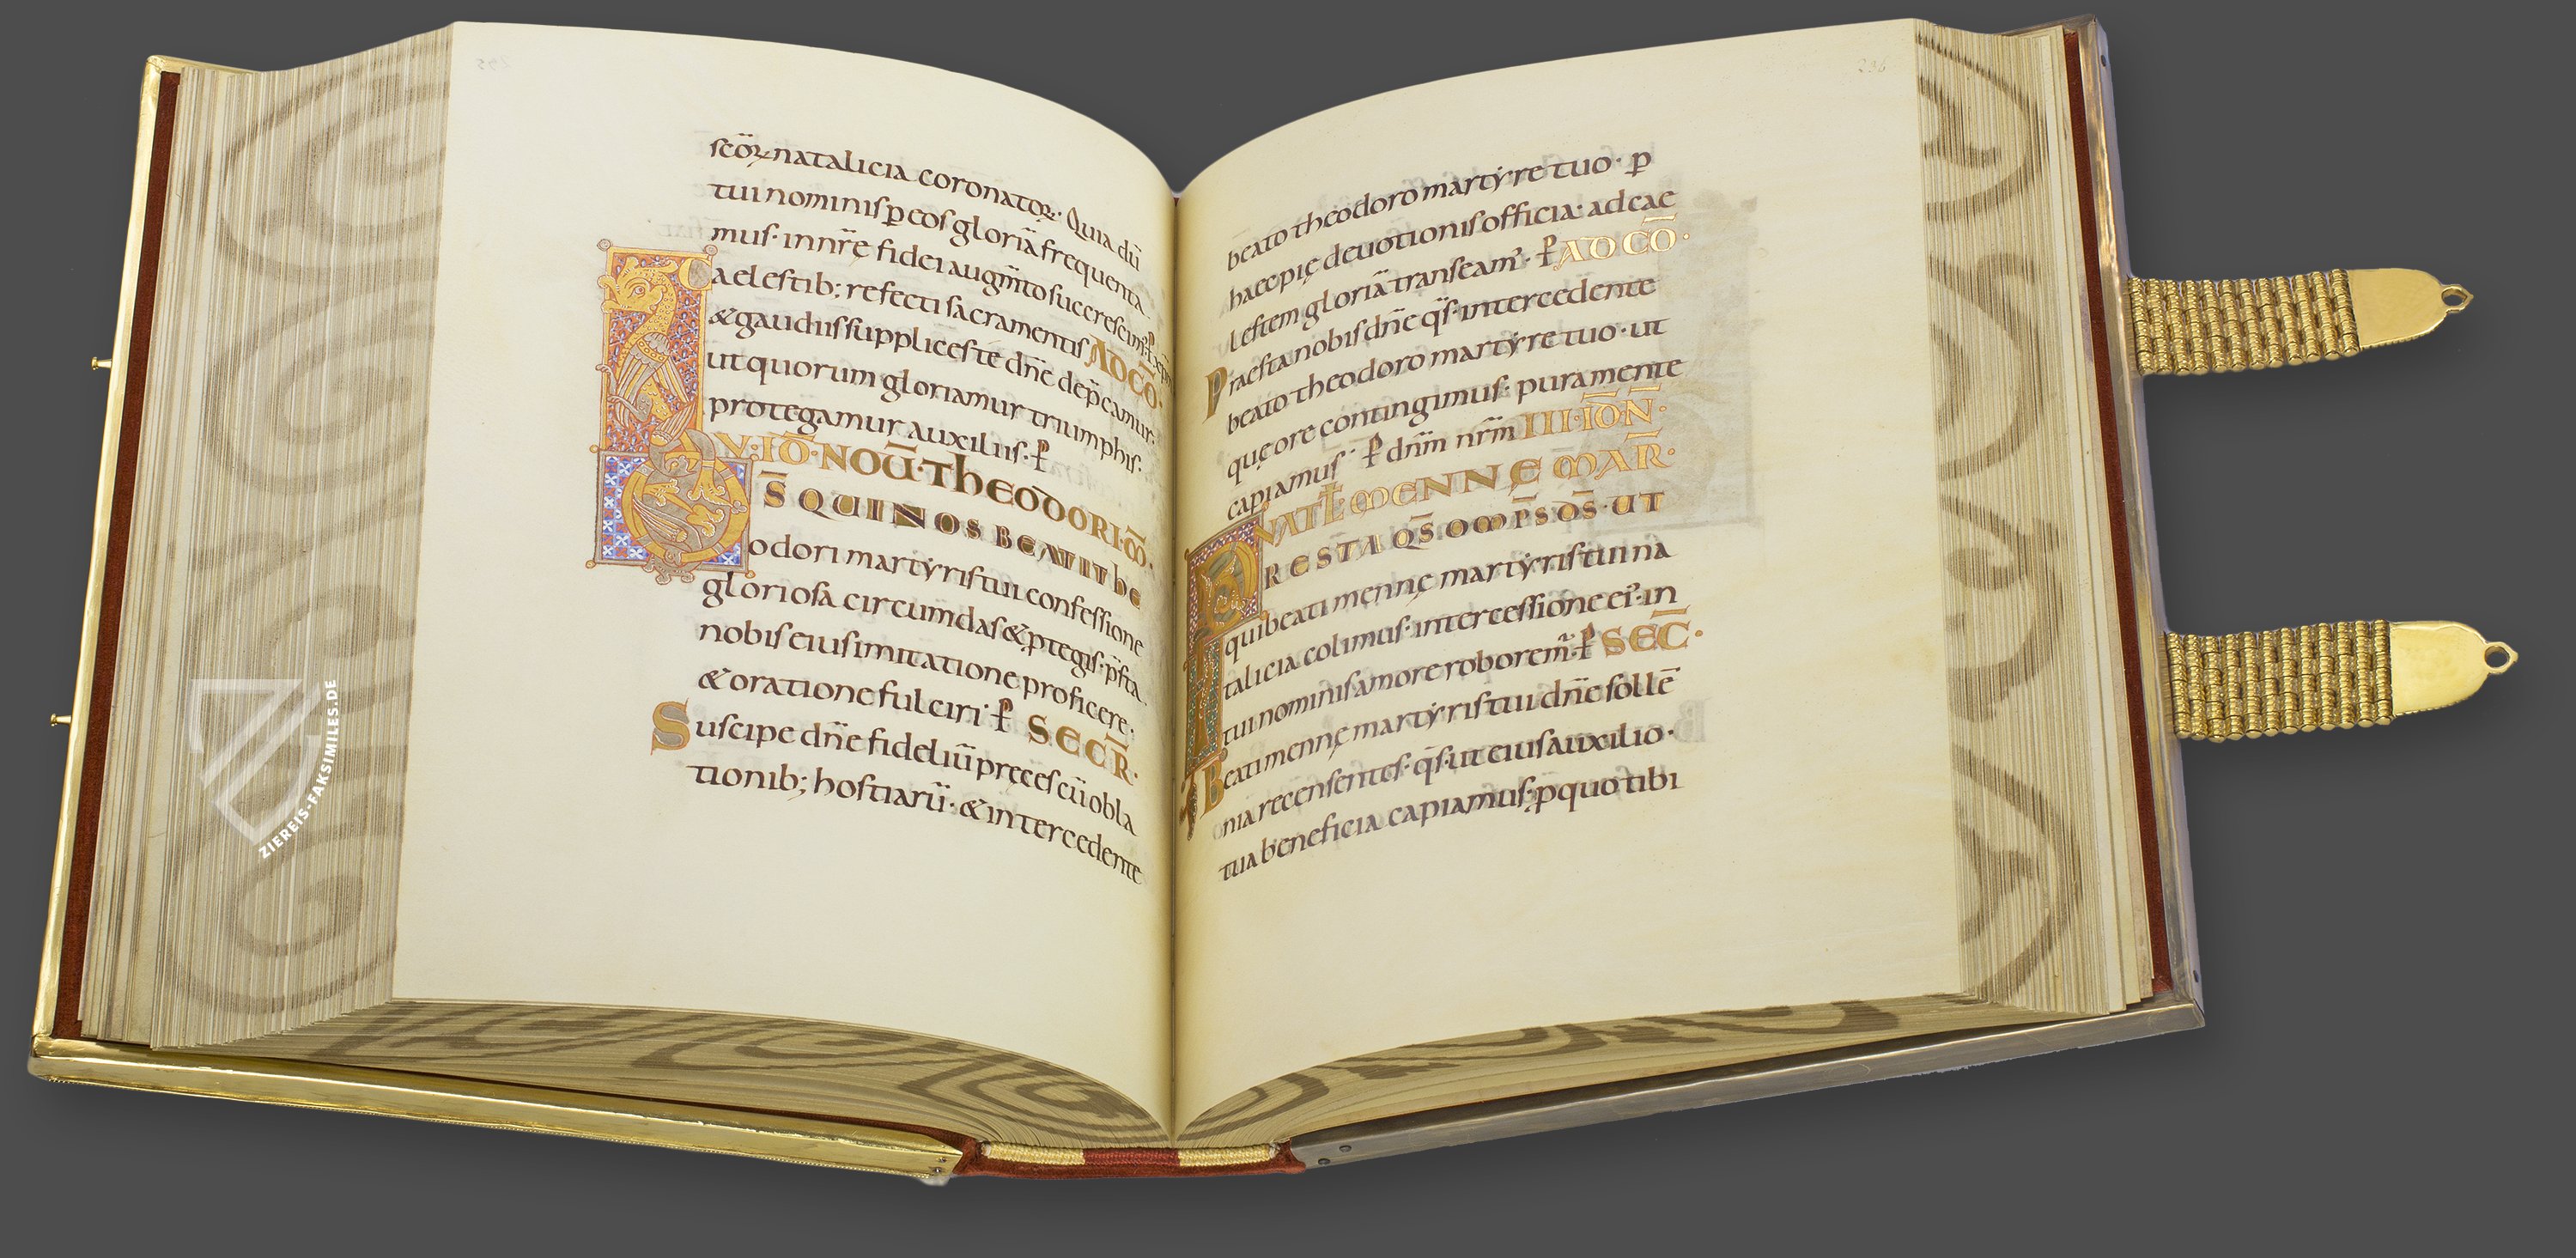 295
scōꝝ natalicia coronatoꝝ. Quia dū
tui nominis p̄ eos gloriā frequenta
mus. in nr̄ę fidei augm̄to succrescim; ꝑ
Caelestib; refecti sacramentis AD CŌ.
& gaudiis supplices te dn̄e dep̄camur.
ut quorum gloriamur triumphis.
protegamur auxiliis. ꝑ
V. ID̄. NOV̄. Theodori. M̄.
D̄S QUI NOS BEATI the
odori martẏris tui confessione
gloriosa circumdas & ꝓtegis. p̄sta
nobis eius imitatione proficere.
& oratione fulciri. ꝑ SECR̄.
Suscipe dn̄e fideliū pręces cū obla
tionib; hostiarū. & intercedente
296
beato theodoro martẏre tuo. ꝑ
haec pię deuotionis officia. ad cae
lestem gloriā transeam᾽. ꝑ AD CŌ.
Praesta nobis dn̄e q̄s. intercedente
beato theodoro martẏre tuo. ut
quę ore contingimus. pura mente
capiamus. ꝑ dn̄m nr̄m III. ID̄. N̄.
NAT̄ MENNĘ MAR̄.
PRESTA Q̄S OM̄P̄S D̄S. UT
qui beati mennę martẏris tui na
talicia colimus. intercessione ei᾽. in
tui nominis amore roborem̄᾽. ꝑ SEC̄.
Beati mennę martẏris tui dn̄e sollē
nia recensentes. q̄s. ut eius auxilio.
tua beneficia capiamus. ꝑ quo tibi
ZIEREIS-FAKSIMILES.DE